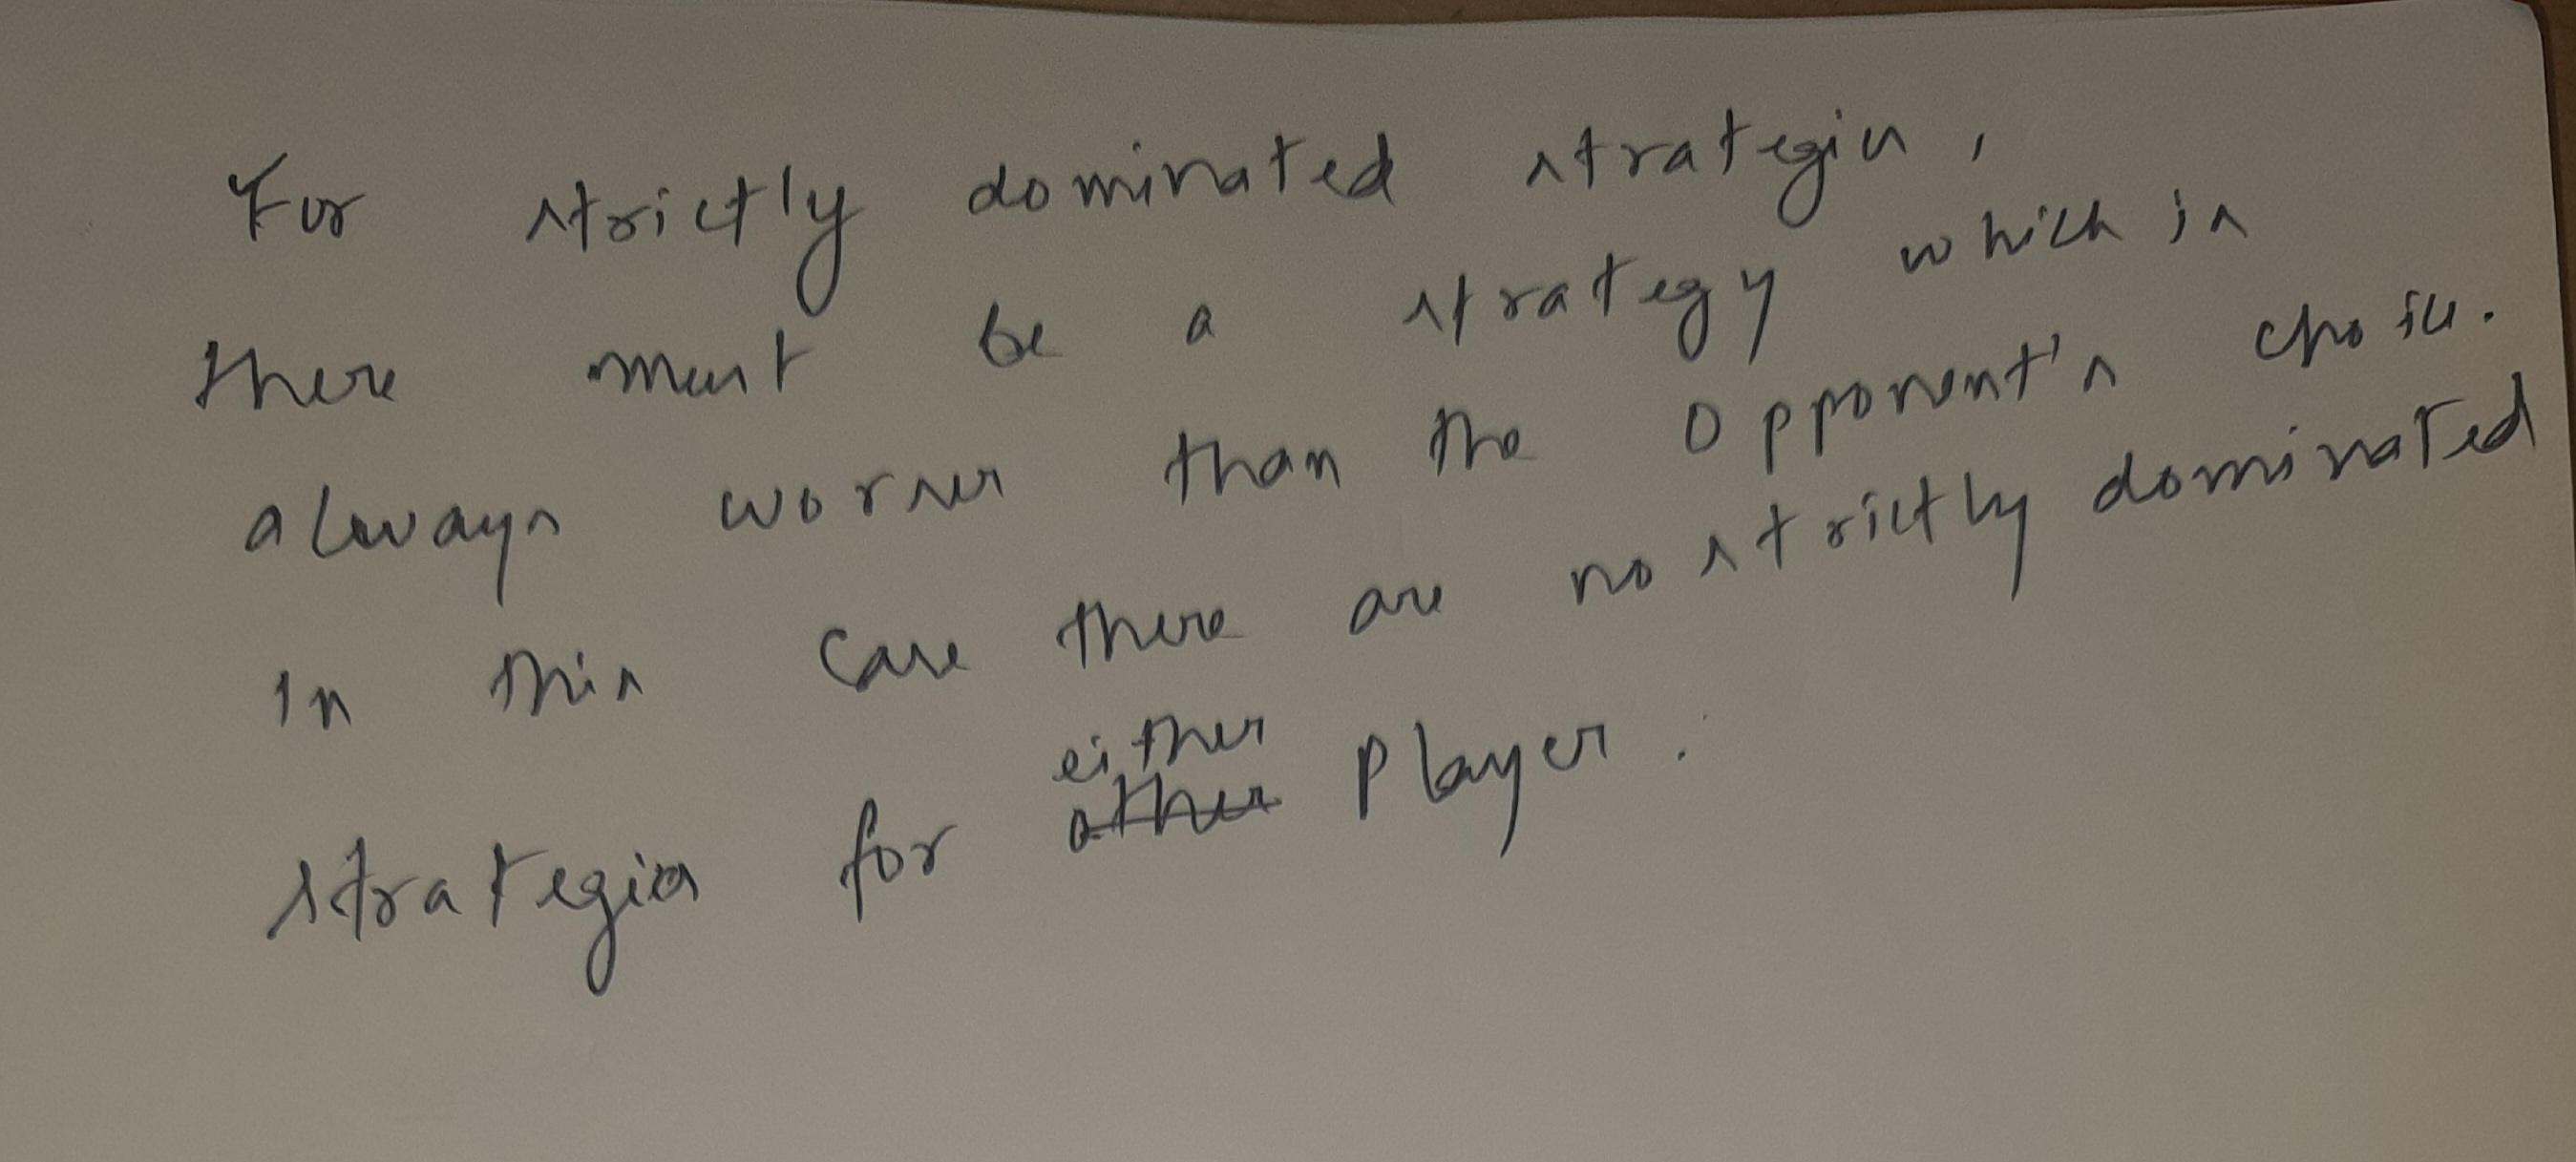 For strictly dominated strategies,
there must be a strategy which is
always worser than the opponent's choice.
In this case there are no strictly dominated
either
strategies for other player.